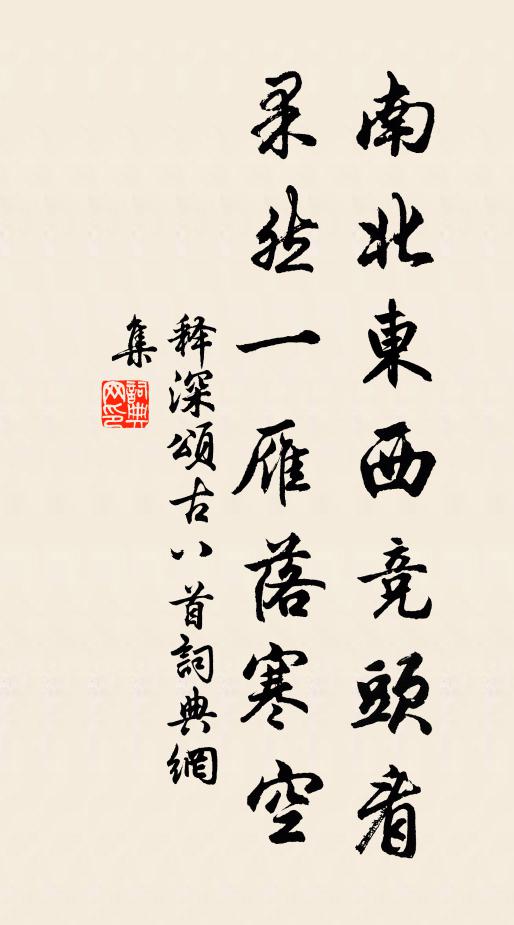 南北東西竞頭看
果然一雁落寒空
释深頌古八首詞典網
集
詞典网印